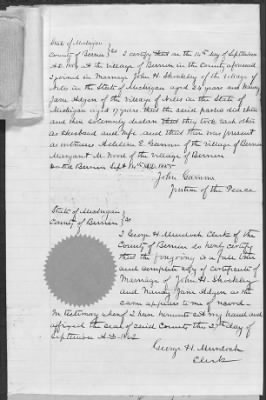 State of Michigan
County of Berrien } ss I certify that on the 14th day of September
A.D. at the village of Berrien in the County aforesaid
I joined in Marriage John H. Shockley of the village of
Niles in the State of Michigan aged 26 years and Nancy
Jane of the Village of Niles in the State of
Michigan aged 17 years that the said parties did then
and there solemnly declare that they took each other
as Husband and wife and that there was present
as witnesses Adaline E. of the village of Berrien
Margaret M. Wood of the village of Berrien
Dated Berrien Sept 14th AD.
John
Justice of the Peace
State of Michigan
County of Berrien } ss
I George H. Murdoch Clerk of the
County of Berrien do hereby certify
that the foregoing is a true
and complete copy of certificate of
Marriage of John H. Shockley
and Nancy Jane as the
same appears of record.
In testimony whereof I have hereunto set my hand and
affixed the seal of said County the day of
September A.D.
George H. Murdoch
Clerk